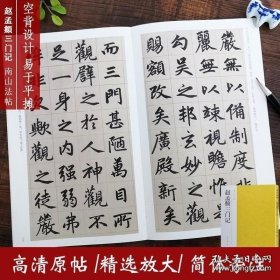 空背设计 易于平摊
赵孟頫三门记 南山法帖
嚴無以備制
麗無以竦視瞻
勾吳之邦玄妙之
賜額改矣廣殿新矣
而三門甚陋萬目所
觀譬之於人神觀不
足一身之内強弱弗
歟觀之徒嚴
赵孟頫三门记
高清原帖/精选放大/简体旁注